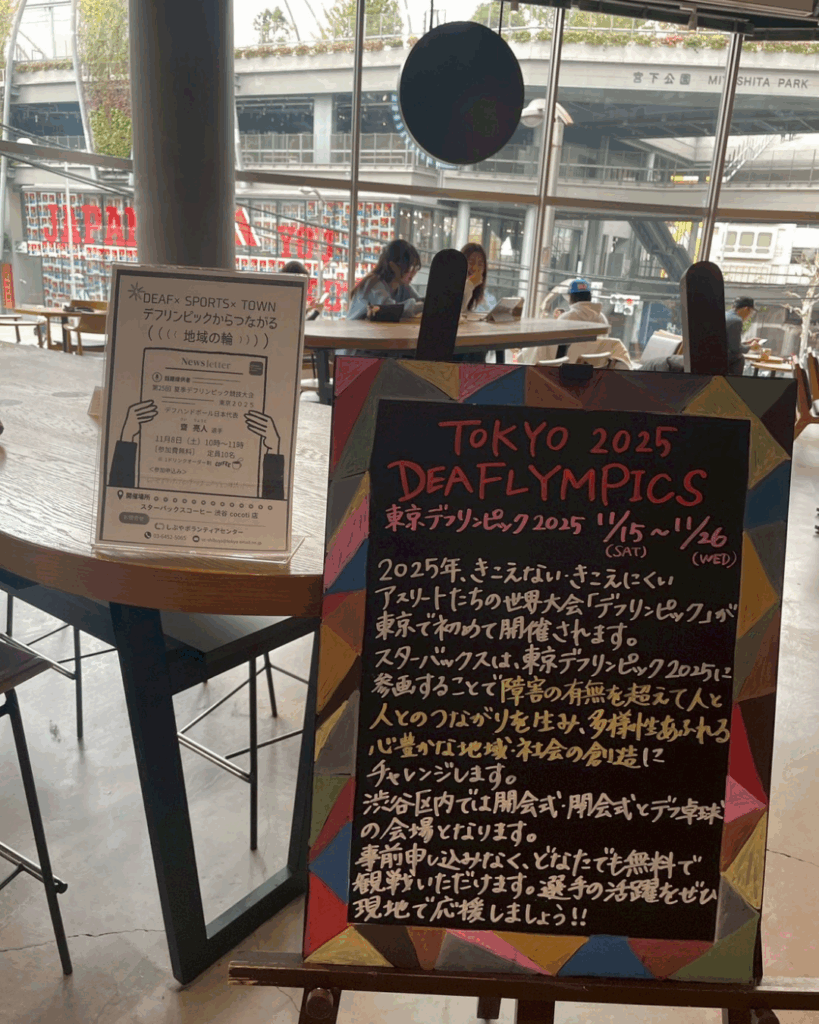 宮下公園 MIYASHITA PARK
JAPAN
YOU
DEAF× SPORTS× TOWN
デフリンピックからつながる
((( 地域の輪 )))
Newsletter
第25回 夏季デフリンピック競技大会
東京2025
デフハンドボール日本代表
亮人 選手
11月8日（土）10時〜11時
（参加費無料） 定員10名
coffee
＜参加申込み＞
開催場所
スターバックスコーヒー 渋谷 cocoti 店
しぶやボランティアセンター
TOKYO 2025
DEAFLYMPICS
東京デフリンピック2025 11/15〜11/26
(SAT) (WED)
2025年、きこえない・きこえにくい
アスリートたちの世界大会「デフリンピック」が
東京で初めて開催されます。
スターバックスは、東京デフリンピック2025に
参画することで障害の有無を超えて人と
人とのつながりを生み、多様性あふれる
心豊かな地域・社会の創造に
チャレンジします。
渋谷区内では開会式・閉会式とデフ卓球
の会場となります。
事前申し込みなく、どなたでも無料で
観戦いただけます。選手の活躍をぜひ
現地で応援しましょう!!